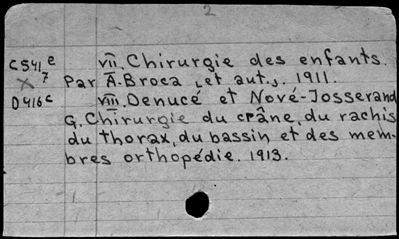 2
C541e vii. Chirurgie des enfants.
x7 Par A. Broca [et aut.]. 1911.
D416c viii. Denucé et Nové-Josserand
G. Chirurgie du crâne, du rachis
du thorax, du bassin et des mem-
bres orthopédie. 1913.